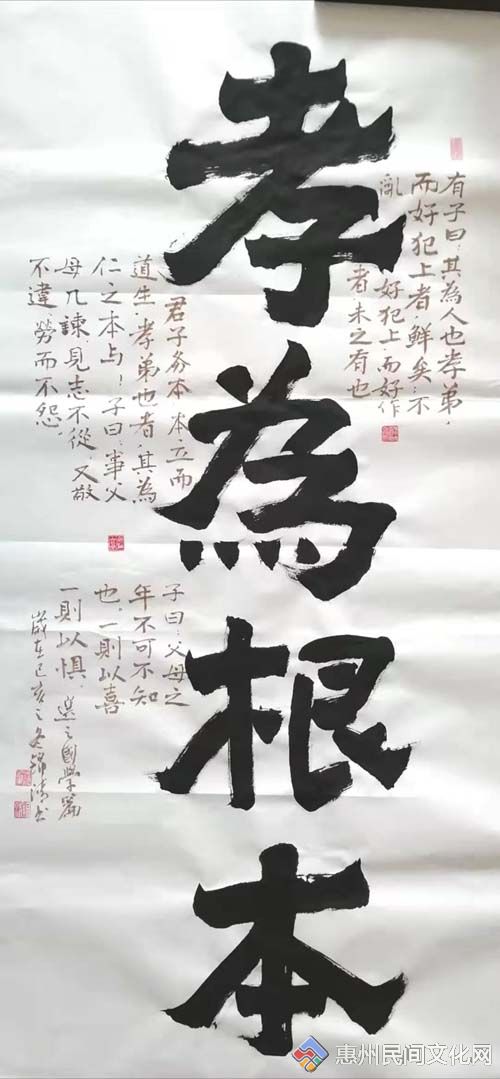 孝為根本
有子曰：其為人也孝弟，
而好犯上者，鮮矣不
好犯上而好作
亂
者未之有也
君子务本本立而
道生，孝弟也者其為
仁之本与！子曰：事父
母几諫，見志不從又敬
不違，勞而不怨。
子曰：父母之
年不可不知
也，一則以喜
一則以惧，
選之國學篇
歲在己亥之冬錦清书
惠州民间文化网